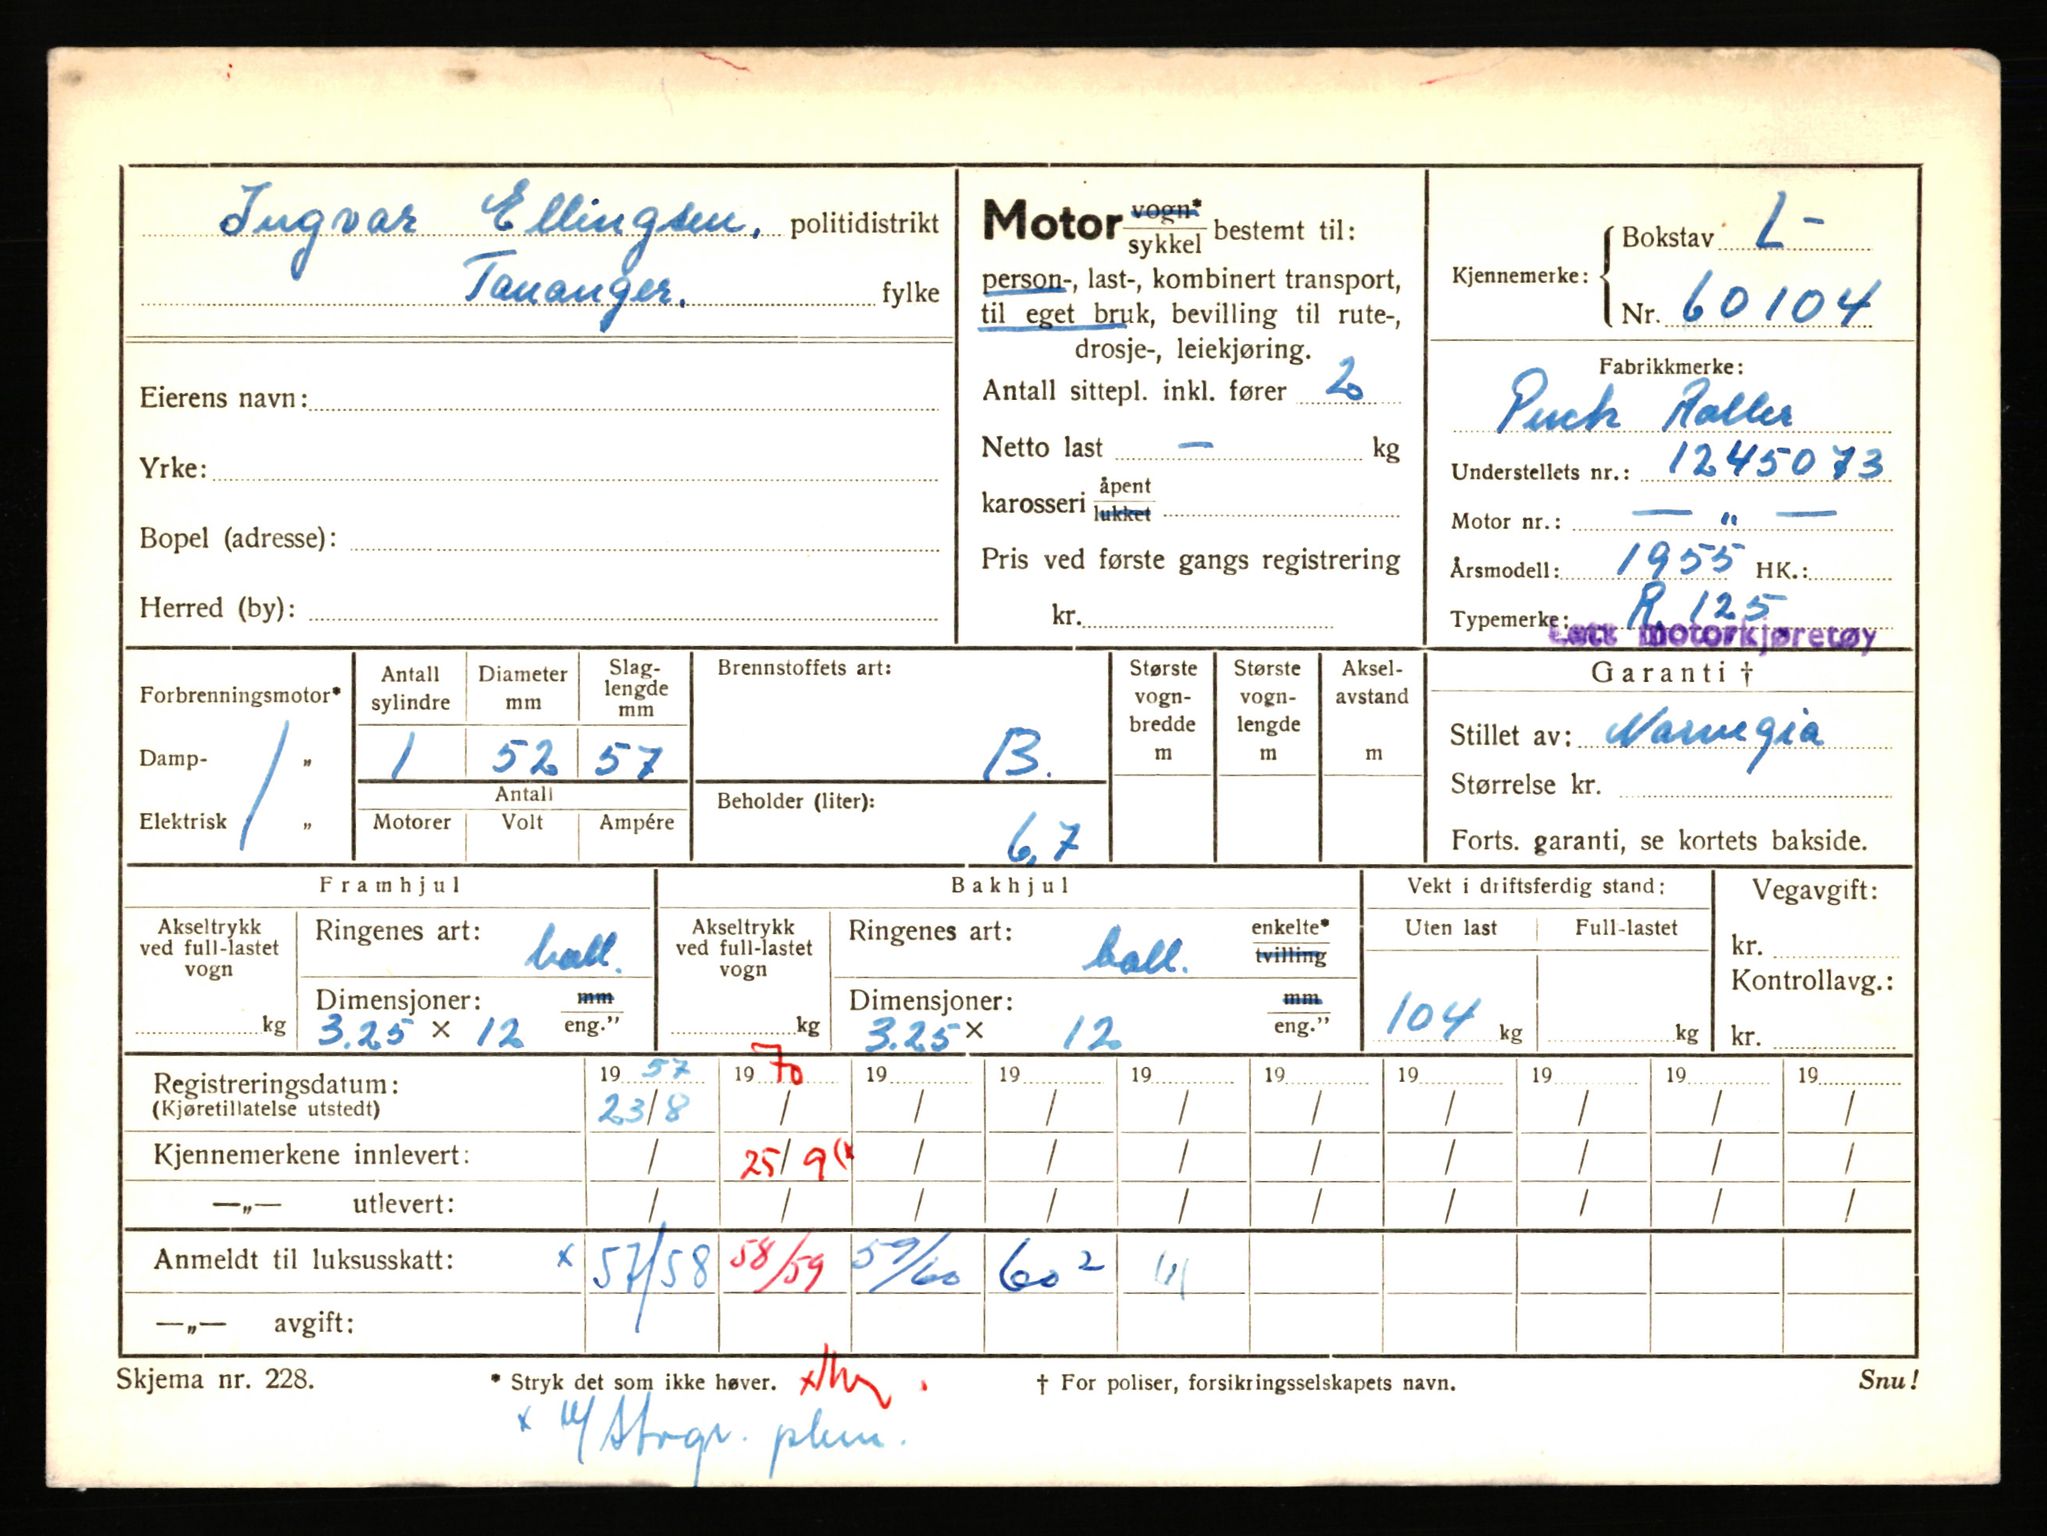 Ingvar Ellingsen. politidistrikt
Tananger. fylke
Eierens navn:
Yrke:
Bopel (adresse):
Herred (by):
Motor vogn* sykkel bestemt til:
person-, last-, kombinert transport,
til eget bruk, bevilling til rute-,
drosje-, leiekjøring.
Antall sittepl. inkl. fører 2
Netto last — kg
karosseri åpent lukket
Pris ved første gangs registrering
kr.
Kjennemerke: Bokstav L-
Nr. 60104
Fabrikkmerke:
Puch Roller
Understellets nr.: 1245073
Motor nr.: — „ —
Årsmodell: 1955 HK.:
Typemerke: R. 125
Lett motorkjøretøy
Forbrenningsmotor*
Damp- „
Elektrisk „
Antall sylindre
Diameter mm
Slaglengde mm
1 52 57
Antall
Motorer Volt Ampére
Brennstoffets art:
B.
Beholder (liter):
6,7
Største vogn-bredde m
Største vogn-lengde m
Aksel-avstand m
Garanti †
Stillet av: Norvegia
Størrelse kr.
Forts. garanti, se kortets bakside.
Framhjul
Akseltrykk ved full-lastet vogn
kg
Ringenes art: ball.
Dimensjoner: mm eng."
3.25 × 12
Bakhjul
Akseltrykk ved full-lastet vogn
kg
Ringenes art: ball. enkelte* tvilling
Dimensjoner: mm eng."
3.25 × 12
Vekt i driftsferdig stand:
Uten last Full-lastet
104 kg kg
Vegavgift:
kr.
Kontrollavg.:
kr.
Registreringsdatum: 19 57 19 70 19 19 19 19 19 19 19 19
(Kjøretillatelse utstedt) 23/8 / / / / / / / / /
Kjennemerkene innlevert: / 25/9 (x / / / / / / / /
—„— utlevert: / / / / / / / / / /
Anmeldt til luksusskatt: x 57/58 58/59 59/60 60²
—„— avgift:
Skjema nr. 228. * Stryk det som ikke høver. † For poliser, forsikringsselskapets navn. Snu!